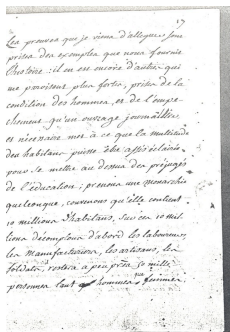 17
Les preuves que je viens d'alleguer sont
prises des exemples que nous fournit
l'histoire : il en est encore d'autres qui
me paroissent plus fortes, prises de la
condition des hommes, et de l'empe-
chement qu'un ouvrage journallier
et necessaire met à ce que la multitude
des habitans puisse être assés éclairée
pour se mettre au dessus des préjugés
de l'éducation ; prenons une monarchie
quelconque, convenons qu'elle contient
10 millions d'habitans, sur ces 10 mil-
lions décomptons d'abord les laboureurs,
les manufacturiers, les artisans, les
soldats, restera à peu près 50 mille
personnes tant hommes que femmes